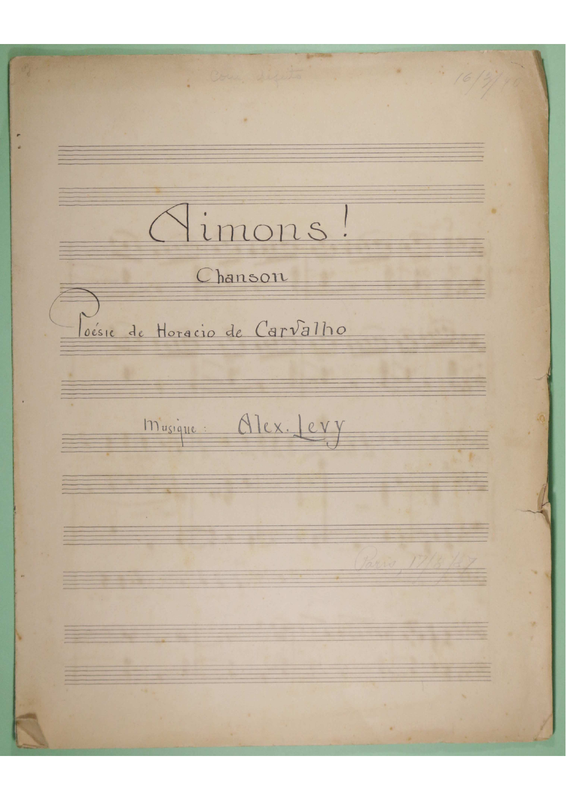 Aimons!
Chanson
Poésie de Horacio de Carvalho
Musique: Alex. Levy
Paris,